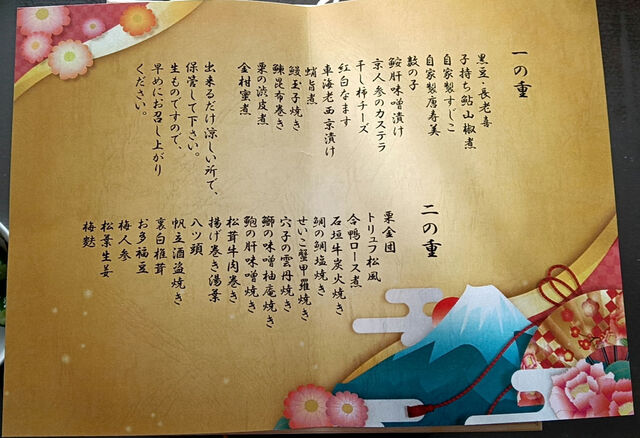 一の重
黒豆・長老喜
子持ち鮎山椒煮
自家製すじこ
自家製唐寿美
数の子
鮟肝味噌漬け
京人参のカステラ
干し柿チーズ
紅白なます
車海老西京漬け
蛸旨煮
鰻玉子焼き
鰊昆布巻き
栗の渋皮煮
金柑蜜煮
出来るだけ涼しい所で、
保管して下さい。
生ものですので、
早めにお召し上がり
ください。
二の重
栗金団
トリュフ松風
合鴨ロース煮
石垣牛炭火焼き
鯛の鯛塩焼き
せいこ蟹甲羅焼き
穴子の雲丹焼き
鰤の味噌柚庵焼き
鮑の肝味噌焼き
松茸牛肉巻き
揚げ巻き湯葉
八ツ頭
帆立酒盗焼き
裏白椎茸
お多福豆
梅人参
松葉生姜
梅麩